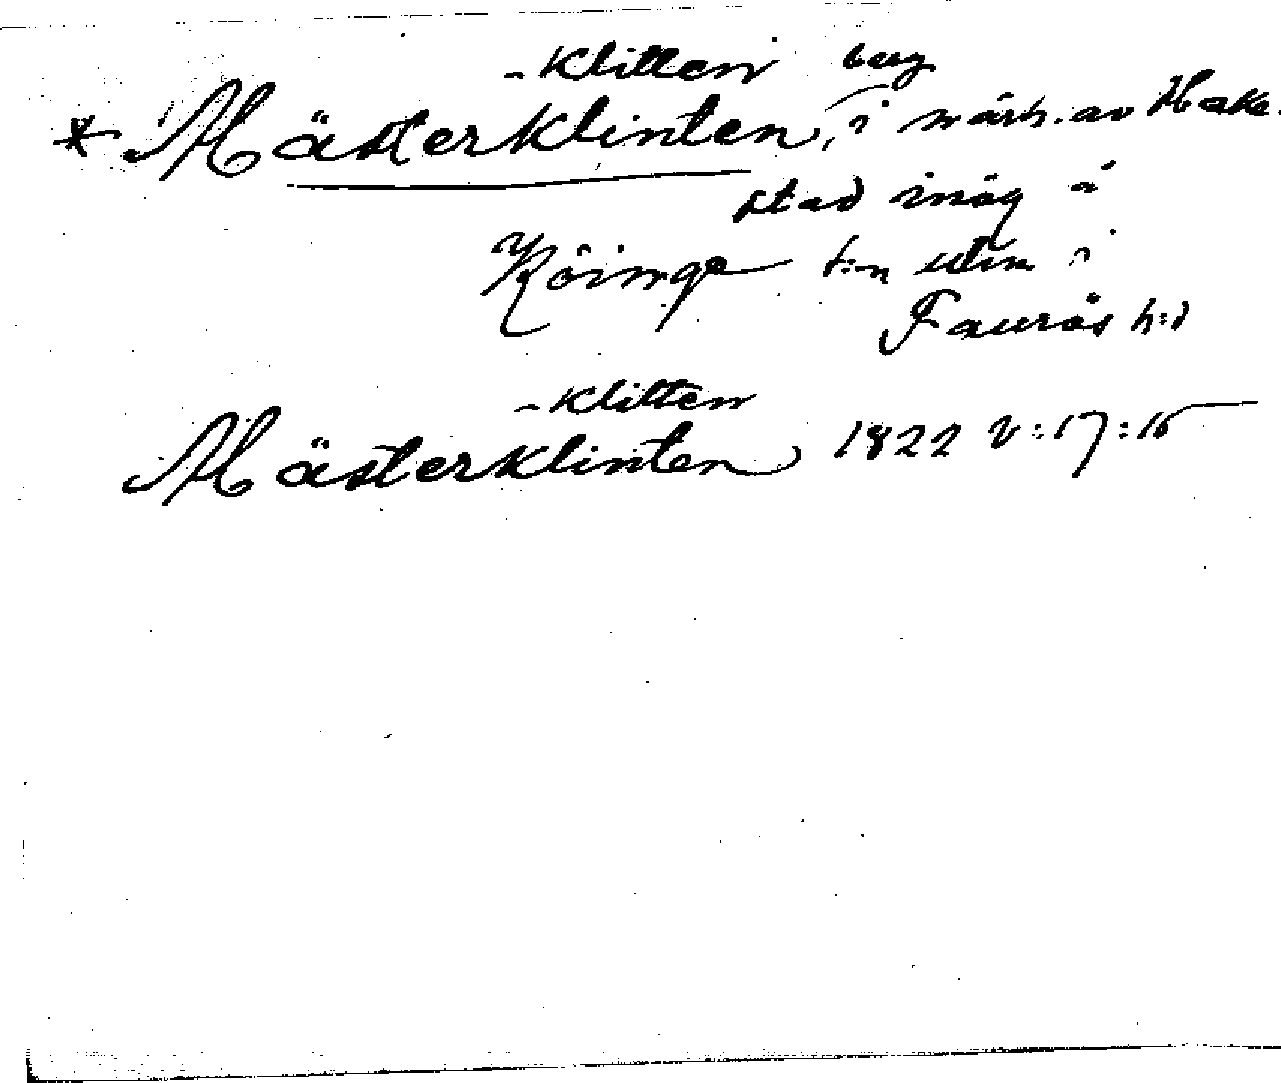 -klitten berg
* Mästerklinten, i närh. av Hake-
stad inäg i
Köinge s:n utm i
Faurås h:d
-klitten
Mästerklinten 1822 V:17:15